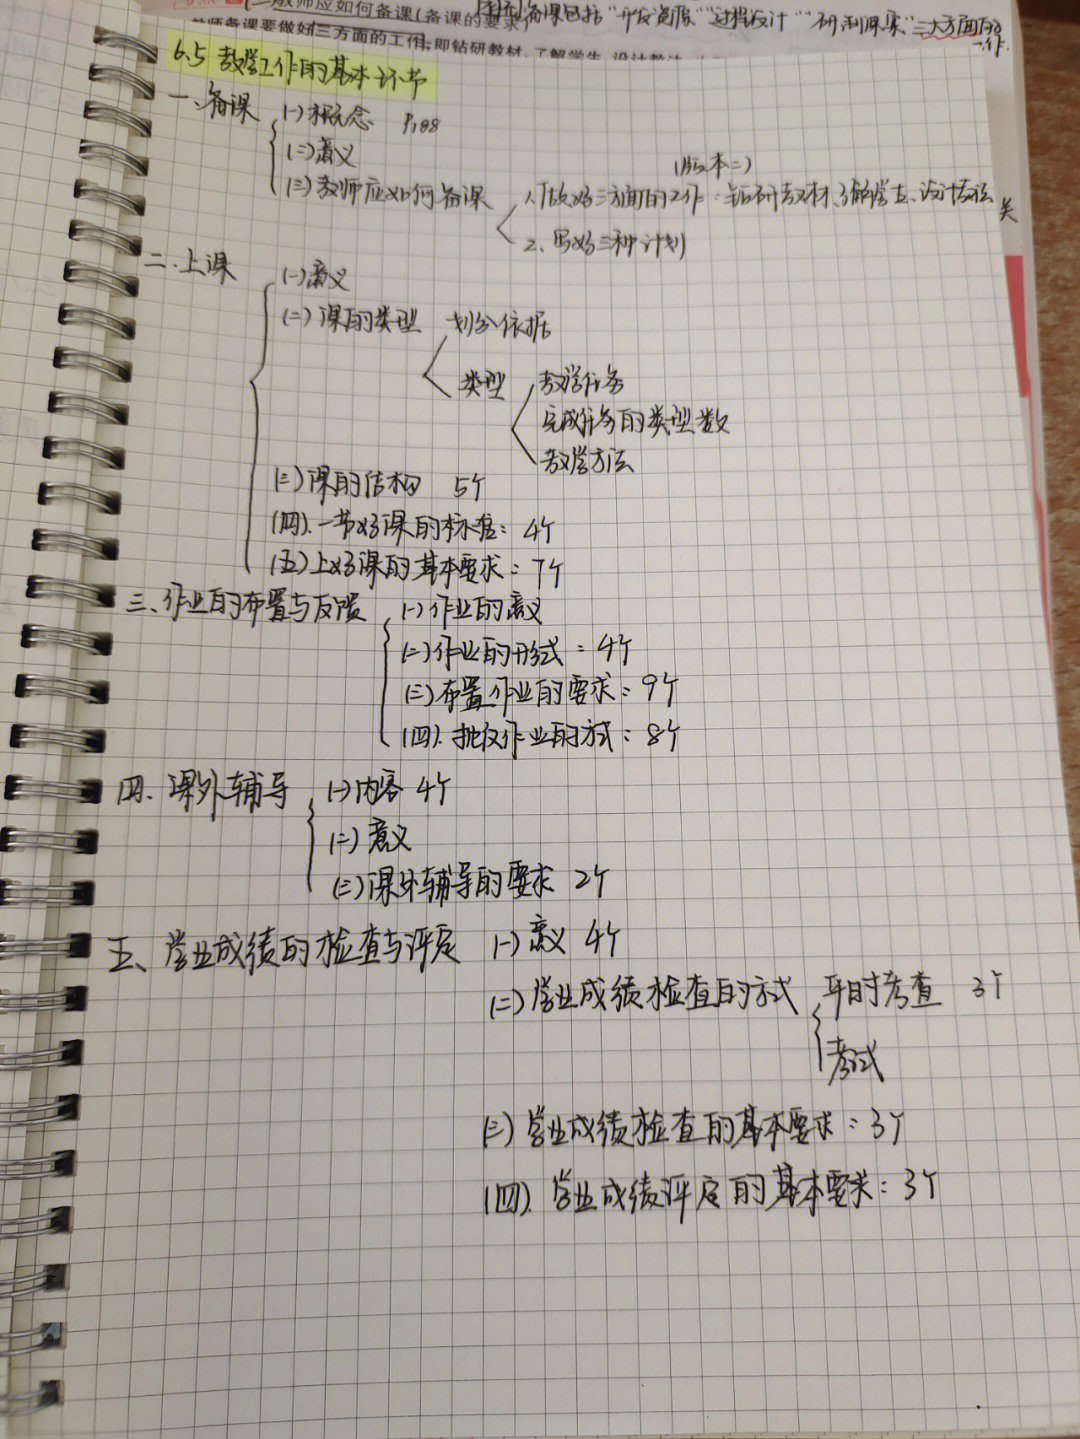 二)教师应如何备课(备课的要求)
备课包括“开发资源”“过程设计”“研制课案”三大方面的工作.
教师备课要做好三方面的工作,即钻研教材、了解学生、设计教法
6.5 教学工作的基本环节
一、备课 (一)概念 P188
(二)意义
(版本二)
(三)教师应如何备课 1.做好三方面的工作:钻研教材、了解学生、设计教法
2、写好三种计划
二、上课 (一)意义
(二)课的类型 划分依据
类型 教学任务
完成任务的类型数
教学方法
(三)课的结构 5个
(四).一节好课的标准:4个
(五)上好课的基本要求:7个
三、作业的布置与反馈 (一)作业的意义
(二)作业的形式:4个
(三)布置作业的要求:9个
(四).批改作业的方式:8个
四、课外辅导 (一)内容 4个
(二)意义
(三)课外辅导的要求 2个
五、学业成绩的检查与评定 (一)意义 4个
(二)学业成绩检查的方式 平时考查 3个
考试
(三)学业成绩检查的基本要求:3个
(四).学业成绩评定的基本要求:3个